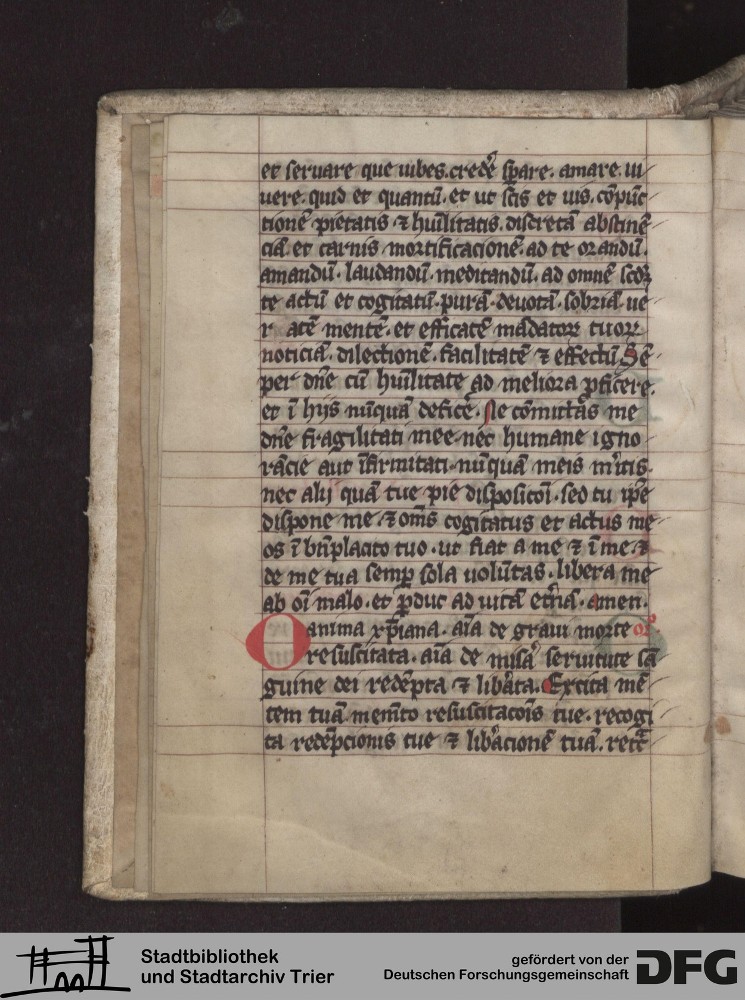 et seruare que iubes. credẽ spare. amare. ui
uere. quid et quantũ. et ut scis et uis. cõpũc
tionẽ pietatis ⁊ hũilitatis. discretã abstinẽ
ciã. et carnis mortificacionẽ. ad te orandũ.
amandũ. laudandũ. meditandũ. ad omnẽ scdꝫ
te actũ et cogitatũ. purã. deuotã. sobriã. ue
r atẽ mentẽ. et efficatẽ mãdatoꝝ tuoꝝ
noticiã. dilectionẽ. facilitatẽ ⁊ effectũ Sẽ
per dñe cũ hũilitate ad meliora ꝓficere.
et ĩ hijs nũquã deficẽ. Ne cõmittas me
dñe fragilitati mee. nec humane igno
rãcie aut ĩfirmitati. nũquã meis mĩtis.
nec alij quã tue pie disposicõi. sed tu ip̃e
dispone me. ⁊ oms̃ cogitatus et actus me
os ĩ bñplacito tuo. ut fiat a me ⁊ ĩ me. ⁊
de me tua semꝑ sola uolũtas. libera me
ab oĩ malo. et ꝑduc ad uitã et̃nã. amen.
O anima xp̃iana. aĩa de graui morte or̃
resuscitata. aĩa de mis̃a seruitute sã
guine dei redẽpta ⁊ lib̃ata. Excita mẽ
tem tuã. memẽto resuscitacõis tue. recogi
ta redẽpcionis tue ⁊ lib̃acionẽ tuã. ret̃c
Stadtbibliothek
und Stadtarchiv Trier
gefördert von der
Deutschen Forschungsgemeinschaft
DFG